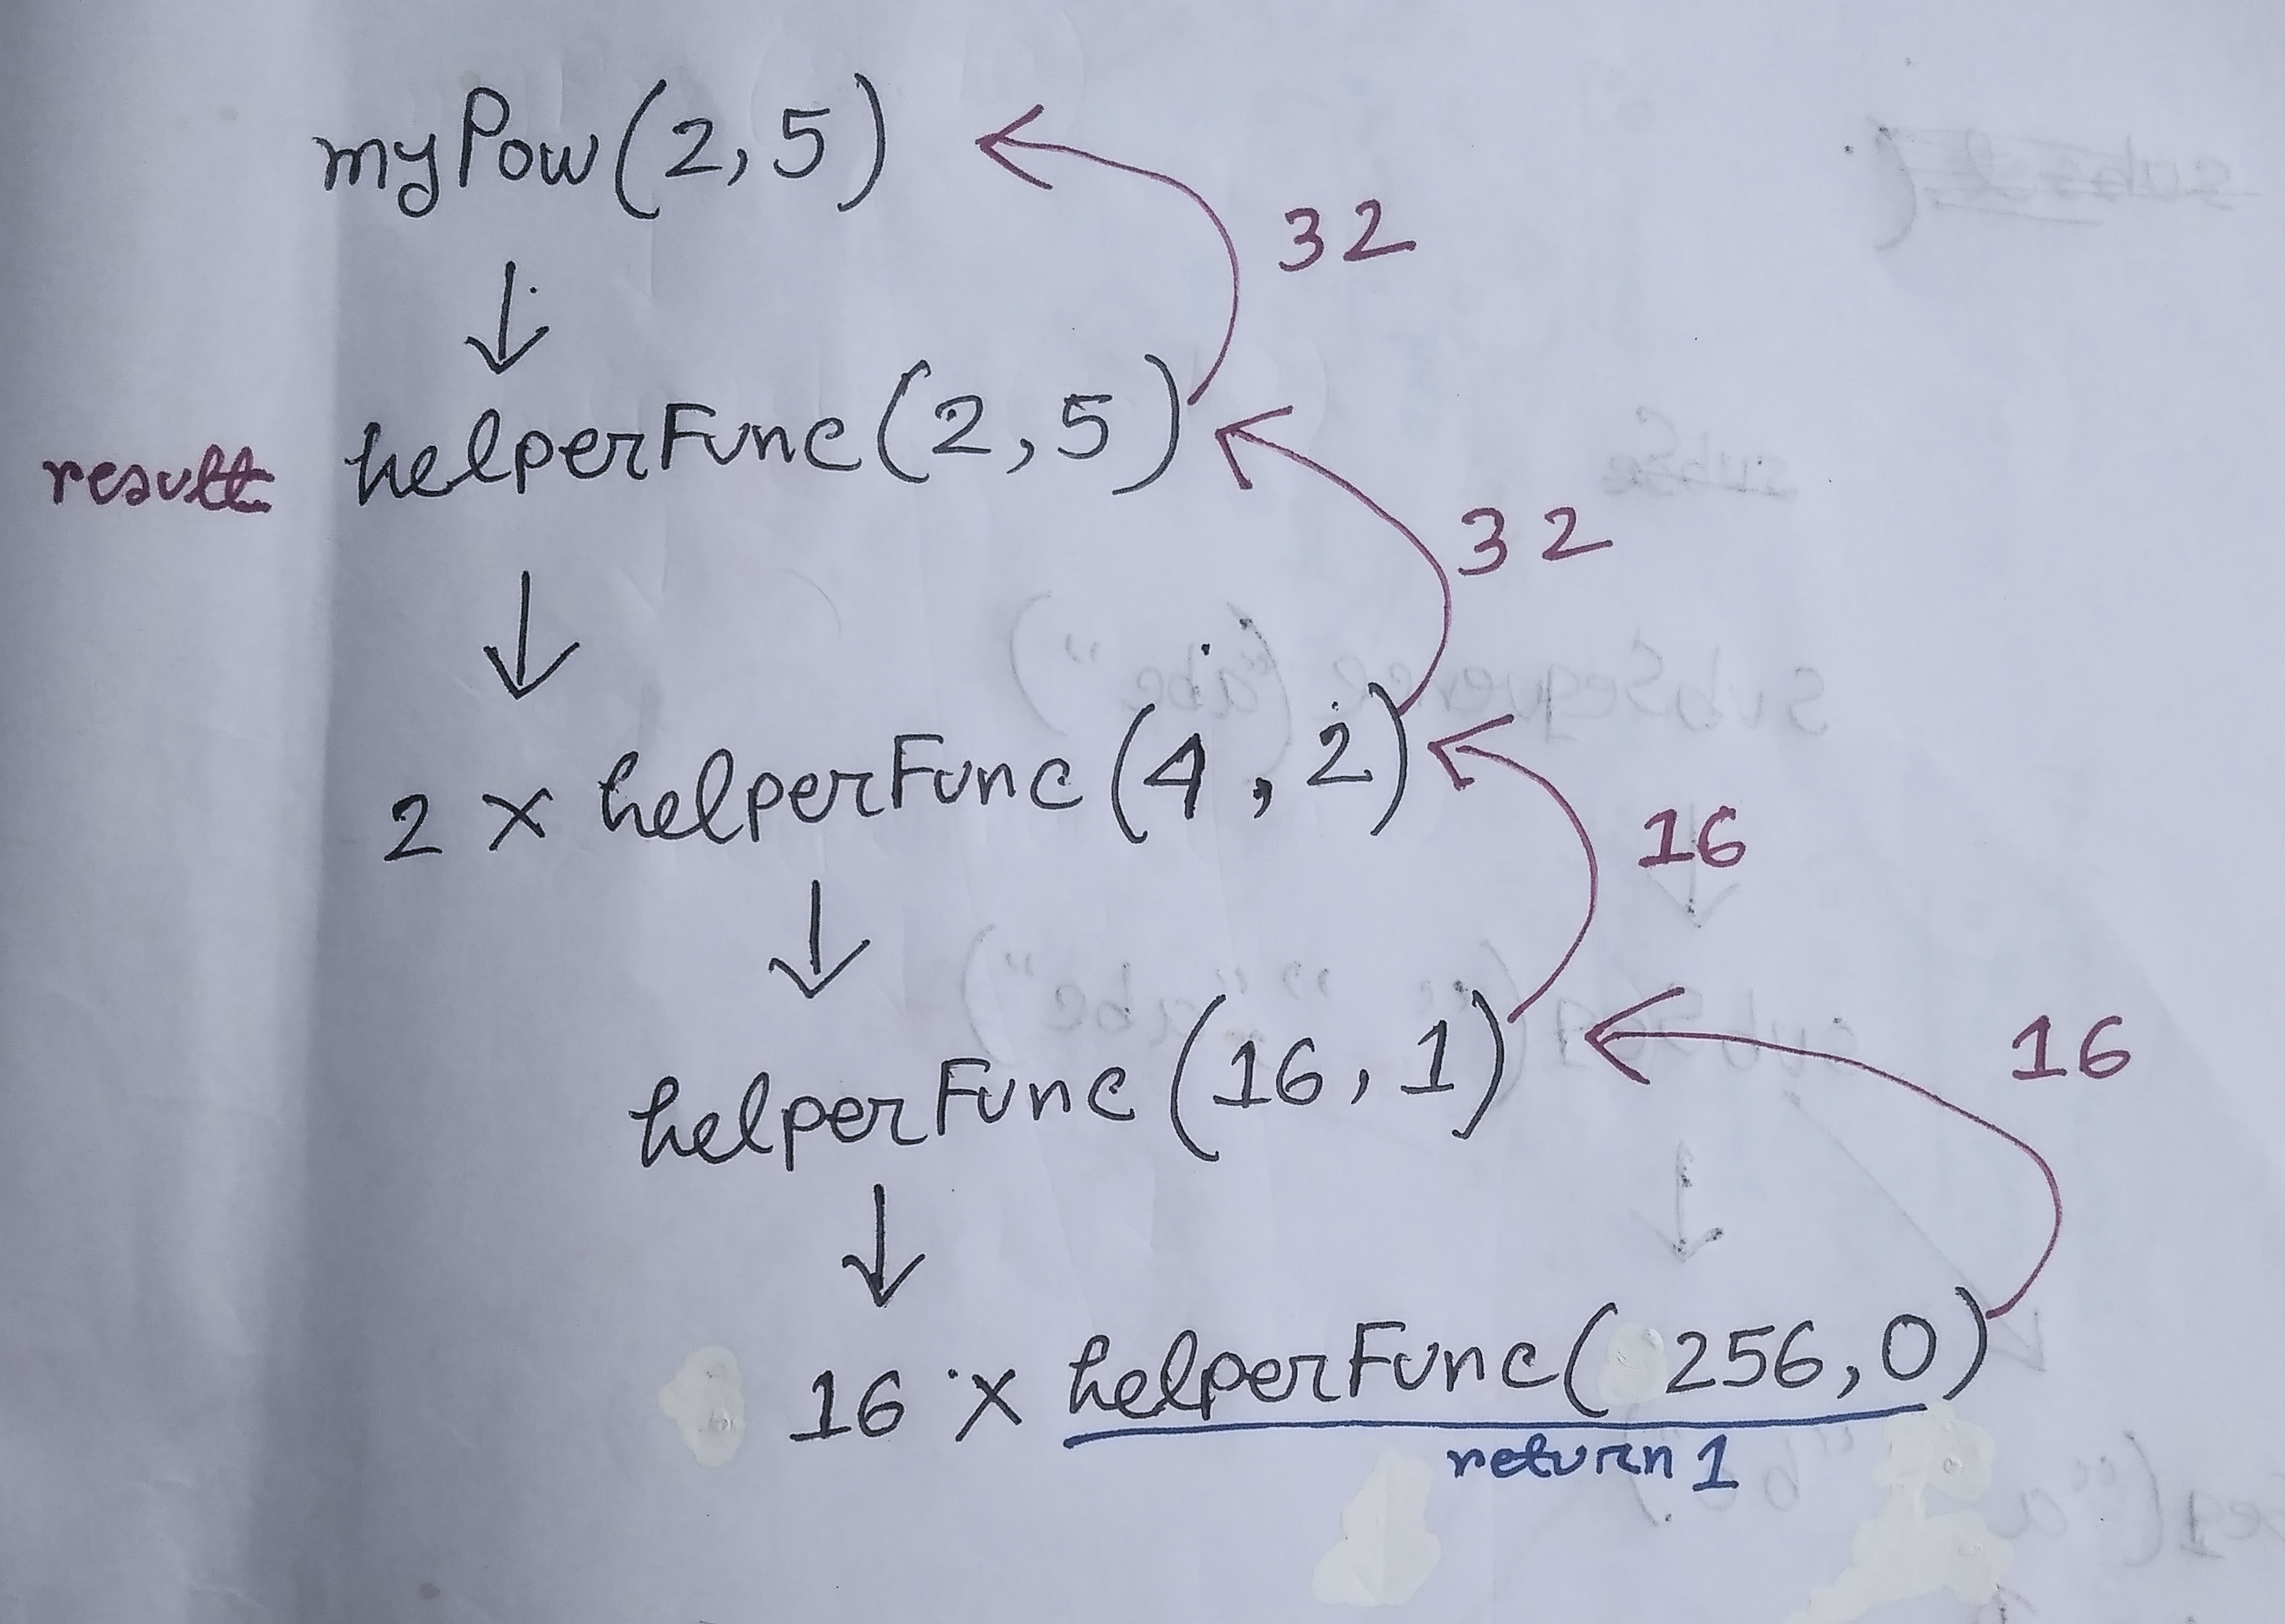 myPow(2,5)
32
result helperFunc(2,5)
32
2 × helperFunc(4,2)
16
helperFunc(16,1)
16
16 × helperFunc(256,0)
return 1